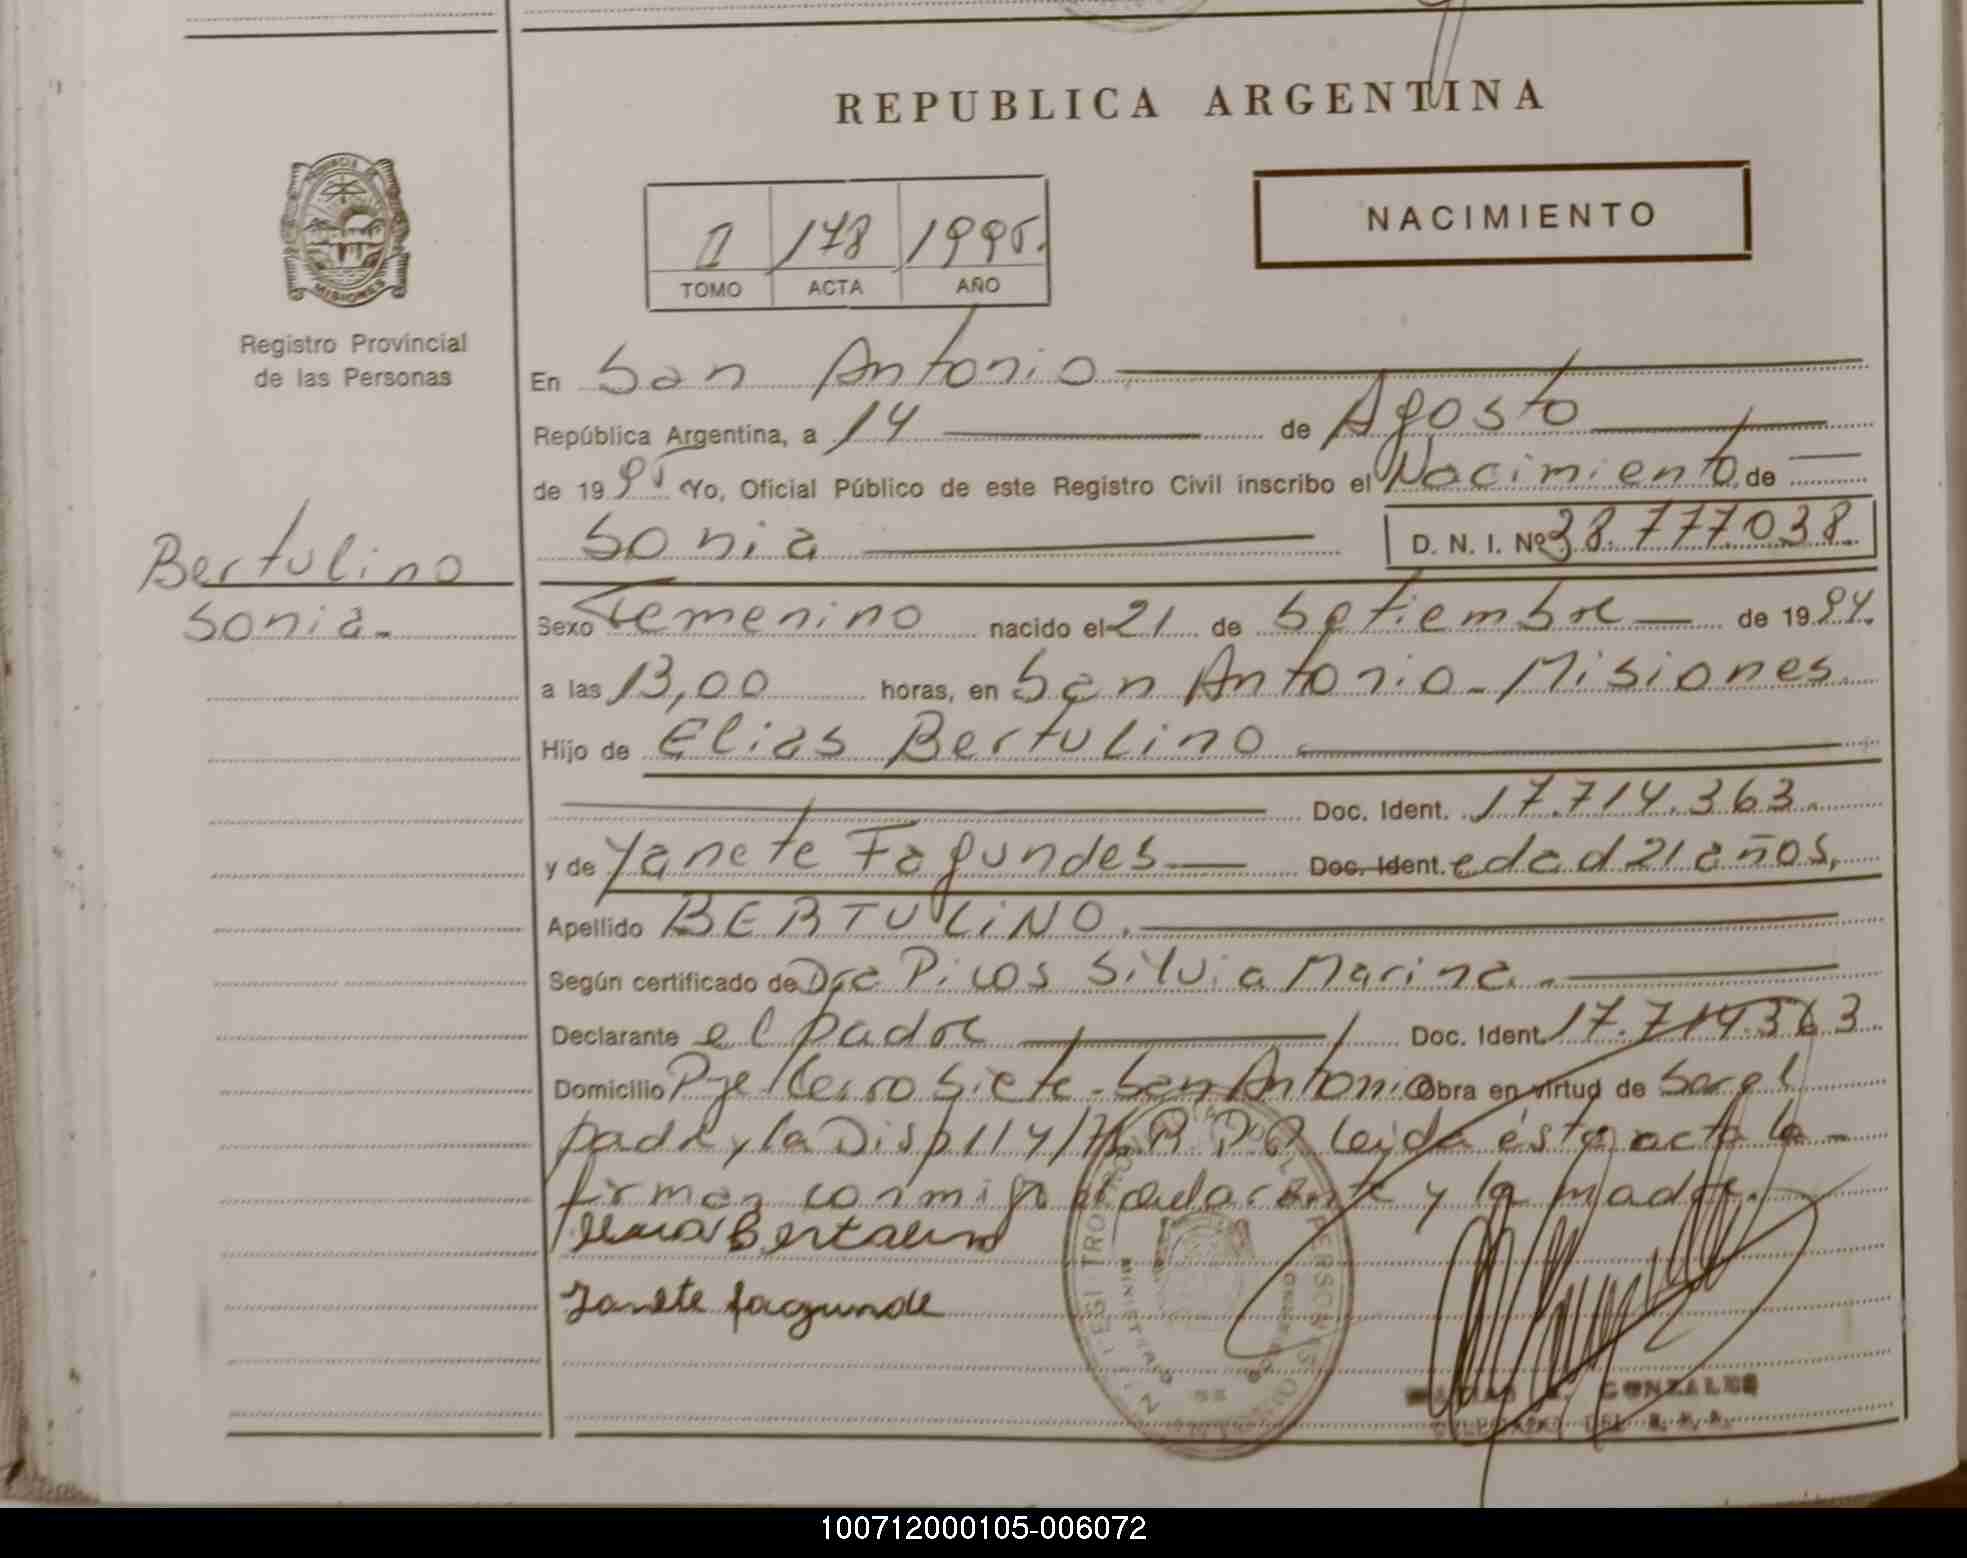 REPUBLICA ARGENTINA
NACIMIENTO
I 178 1995.
TOMO ACTA AÑO
PROVINCIA DE MISIONES
Registro Provincial
de las Personas
Bertulino
Sonia.
En San Antonio
República Argentina, a 14 de Agosto
de 1995 Yo, Oficial Público de este Registro Civil inscribo el Nacimiento de
Sonia D. N. I. Nº 38.777.038.
Sexo Femenino nacido el 21 de Setiembre de 1994.
a las 13,00 horas, en San Antonio - Misiones
Hijo de Elias Bertulino
Doc. Ident. 17.714.363.
y de Yanete Fagundes Doc. Ident. edad 21 años,
Apellido BERTULINO.
Según certificado de Dra Picos Silvia Marina.
Declarante el padre Doc. Ident. 17.714.363
Domicilio Pje Cerro Siete - San Antonio Obra en virtud de Ser el
padre y la Disp 114/ R.P.P. leida ésta acta la -
firman conmigo el declarante y la madre.
Bertulino
Janete fagunde
GONZALES
DEL R.P.P.
100712000105-006072